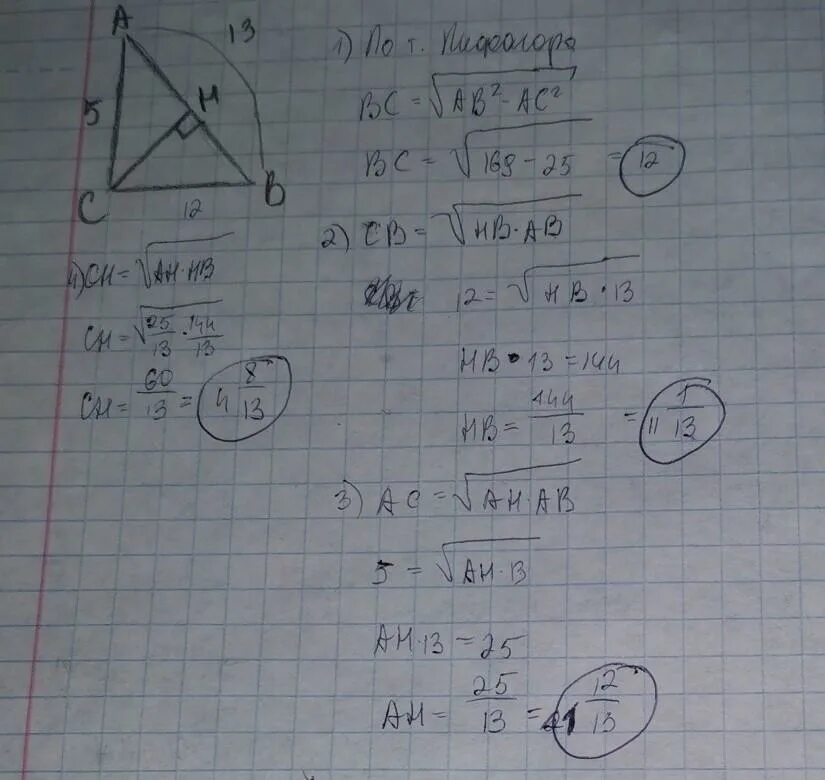 A
13
5
H
C
B
12
1) По т. Пифагора
BC = √AB² - AC²
BC = √169 - 25 = 12
2) CB = √HB · AB
12 = √HB · 13
HB · 13 = 144
HB = 144/13 = 11 1/13
3) AC = √AH · AB
5 = √AH · 13
AH · 13 = 25
AH = 25/13 = 1 12/13
4) CH = √AH · HB
CH = √25/13 · 144/13
CH = 60/13 = 4 8/13